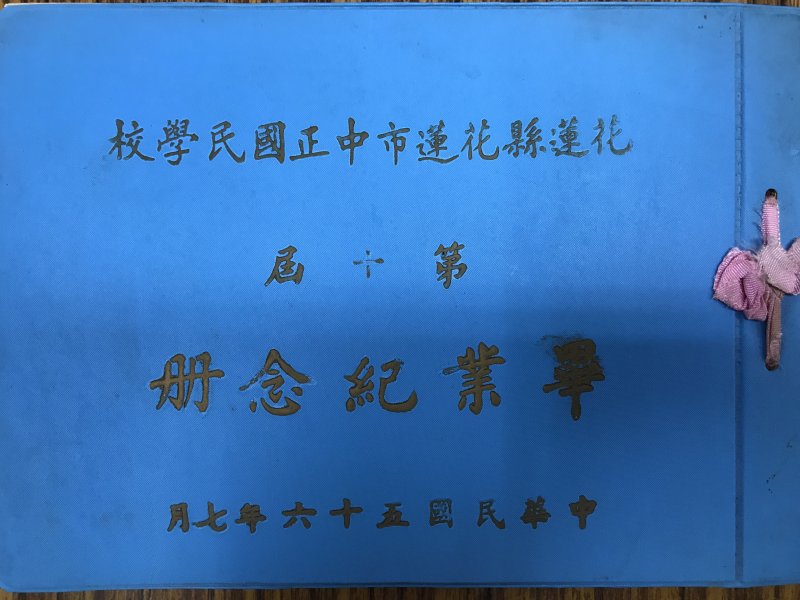 花蓮縣花蓮市中正國民學校
第十屆
畢業紀念册
中華民國五十六年七月